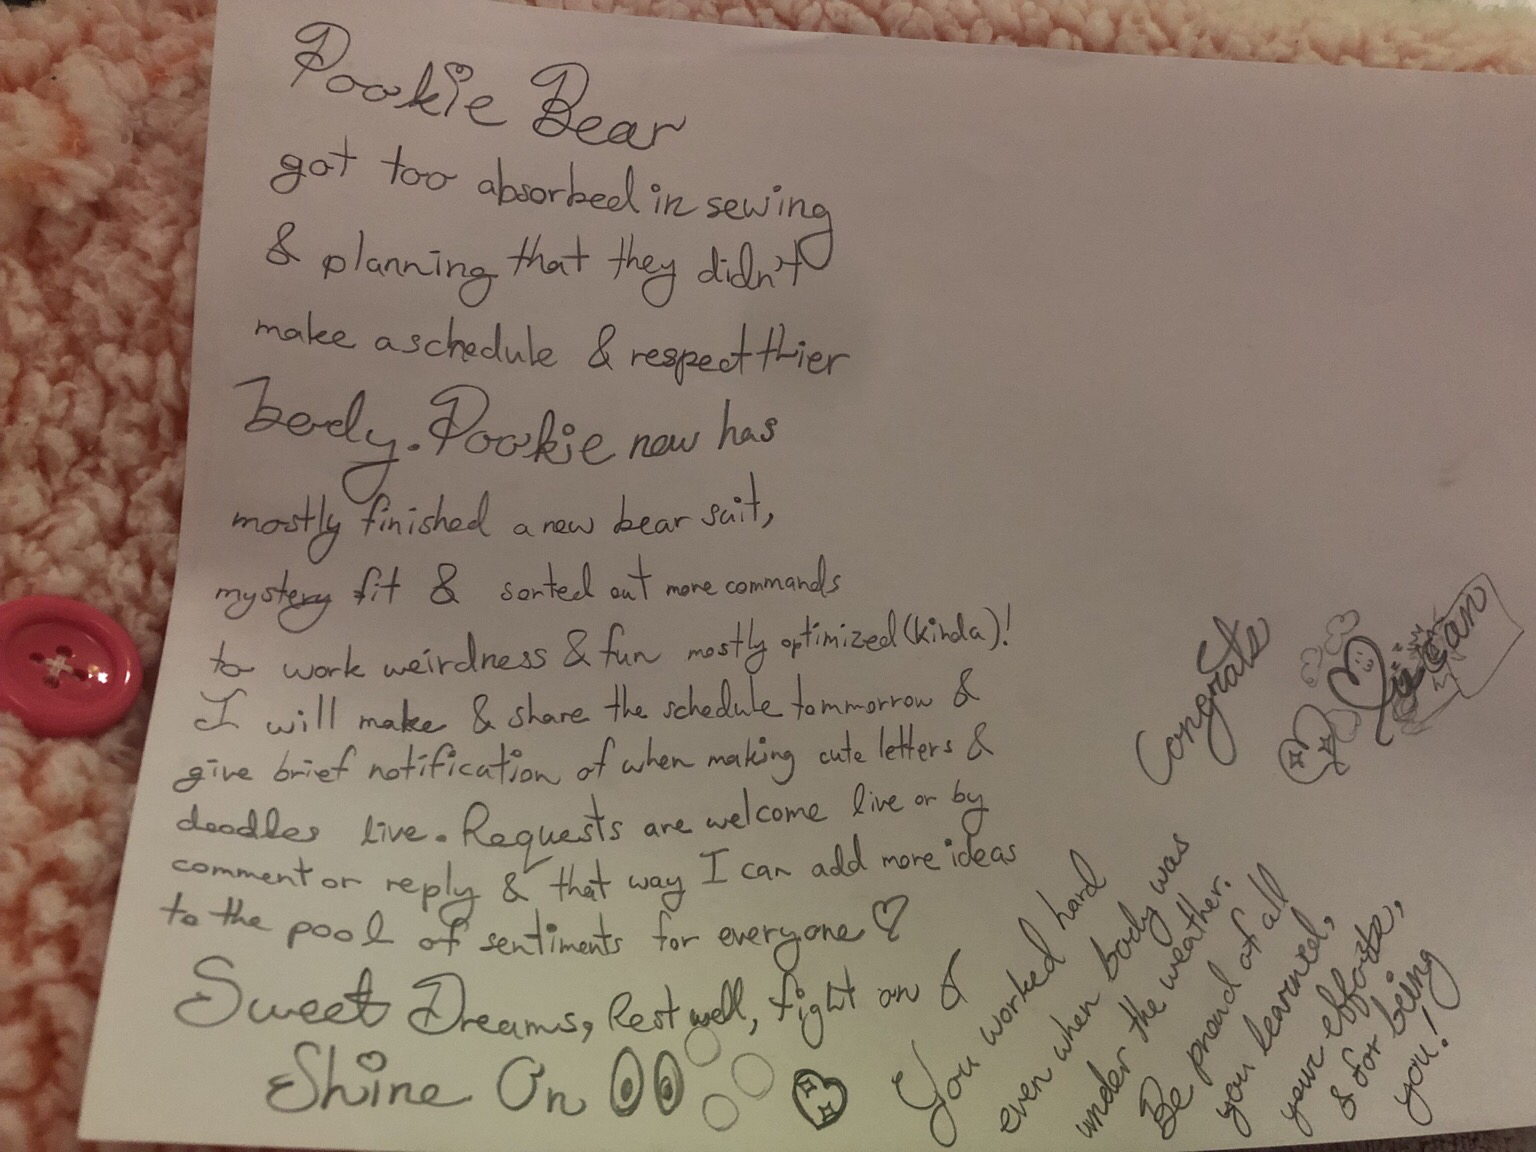 Pookie Bear
got too absorbed in sewing
& planning that they didn't
make a schedule & respect thier
body. Pookie now has
mostly finished a new bear suit,
mystery fit & sorted out more commands
to work weirdness & fun mostly optimized (kinda)!
I will make & share the schedule tommorrow &
give brief notification of when making cute letters &
doodles live. Requests are welcome live or by
comment or reply & that way I can add more ideas
to the pool of sentiments for everyone ♡
Sweet Dreams, Rest well, fight on &
Shine On
Congrats
You worked hard
even when body was
under the weather.
Be proud of all
you learned,
your efforts,
& for being
you!